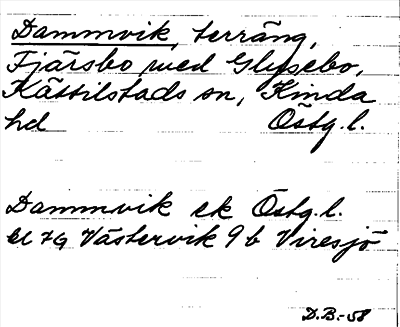 Dammvik, terräng,
Fjärsbo med Glysebo,
Kättilstads sn, Kinda
hd Östg.l.
Dammvik ek Östg.l.
bl 7G Västervik 9 b Viresjö
D.B.-58